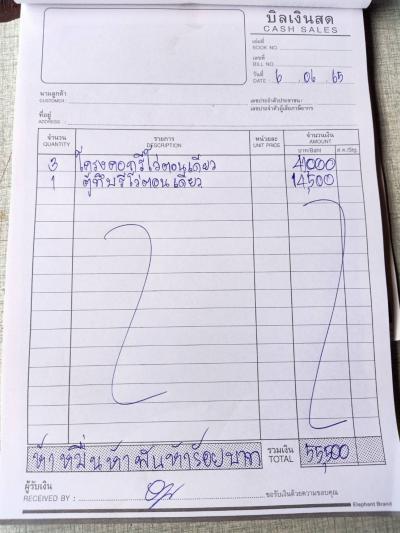 บิลเงินสด
CASH SALES
เล่มที่
BOOK NO.
เลขที่
BILL NO.
วันที่
DATE 6 06 65
นามลูกค้า
CUSTOMER
เลขประจำตัวประชาชน
เลขประจำตัวผู้เสียภาษีอากร
ที่อยู่
ADDRESS
จำนวน รายการ หน่วยละ จำนวนเงิน
QUANTITY DESCRIPTION UNIT PRICE AMOUNT
บาท/Baht ส.ต./Stg.
3 โครงคอกรีโว่ตอนเดียว 41000
1 ตู้ทึบรีโว่ตอนเดียว 14,500
ห้าหมื่นห้าพันห้าร้อยบาท รวมเงิน TOTAL 55,500
ผู้รับเงิน
RECEIVED BY : ขอรับเงินด้วยความขอบคุณ
Elephant Brand